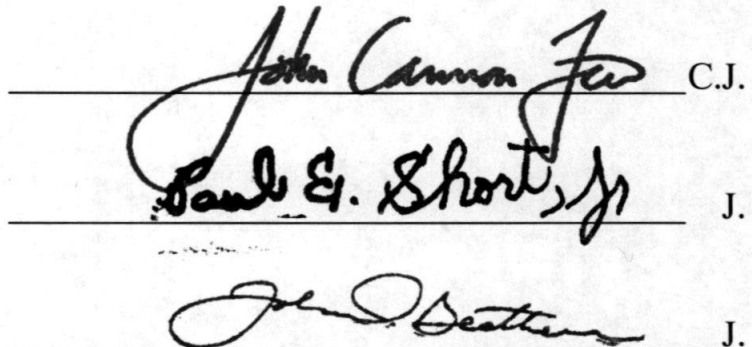 John Cannon Few C.J.
Paul E. Short, Jr J.
John D. Geathers J.